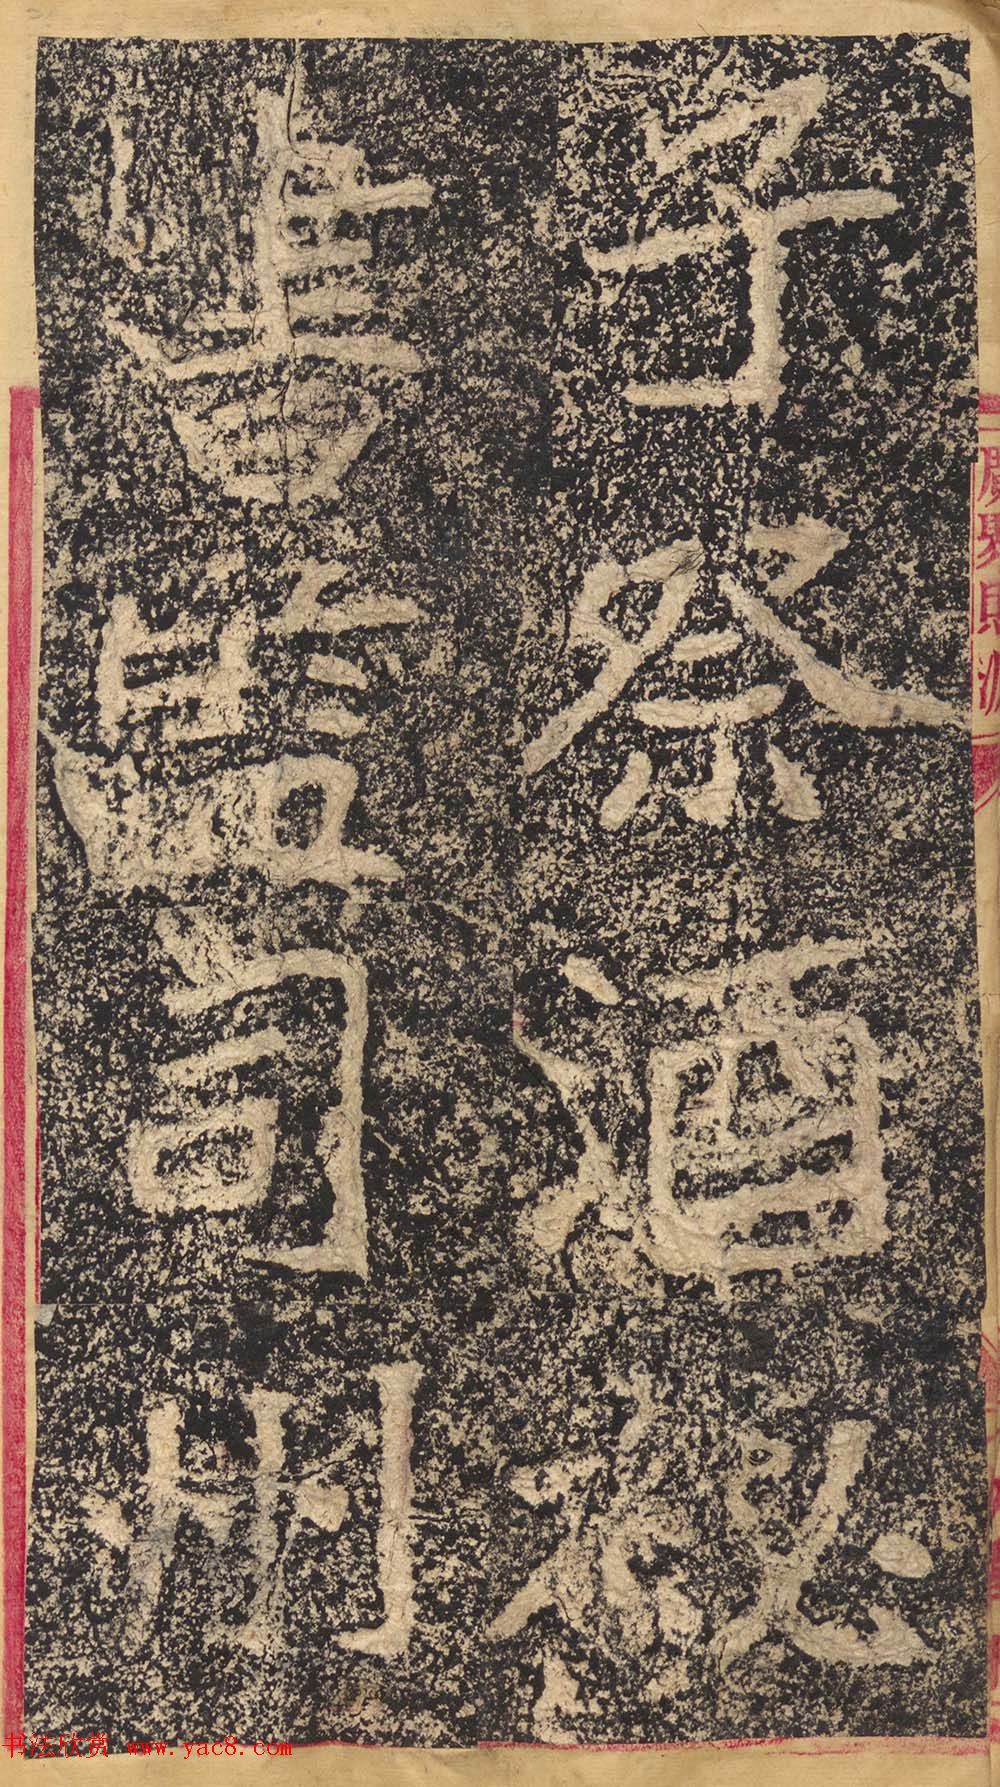 子祭酒秘
書監司州
书法欣赏 www.yac8.com